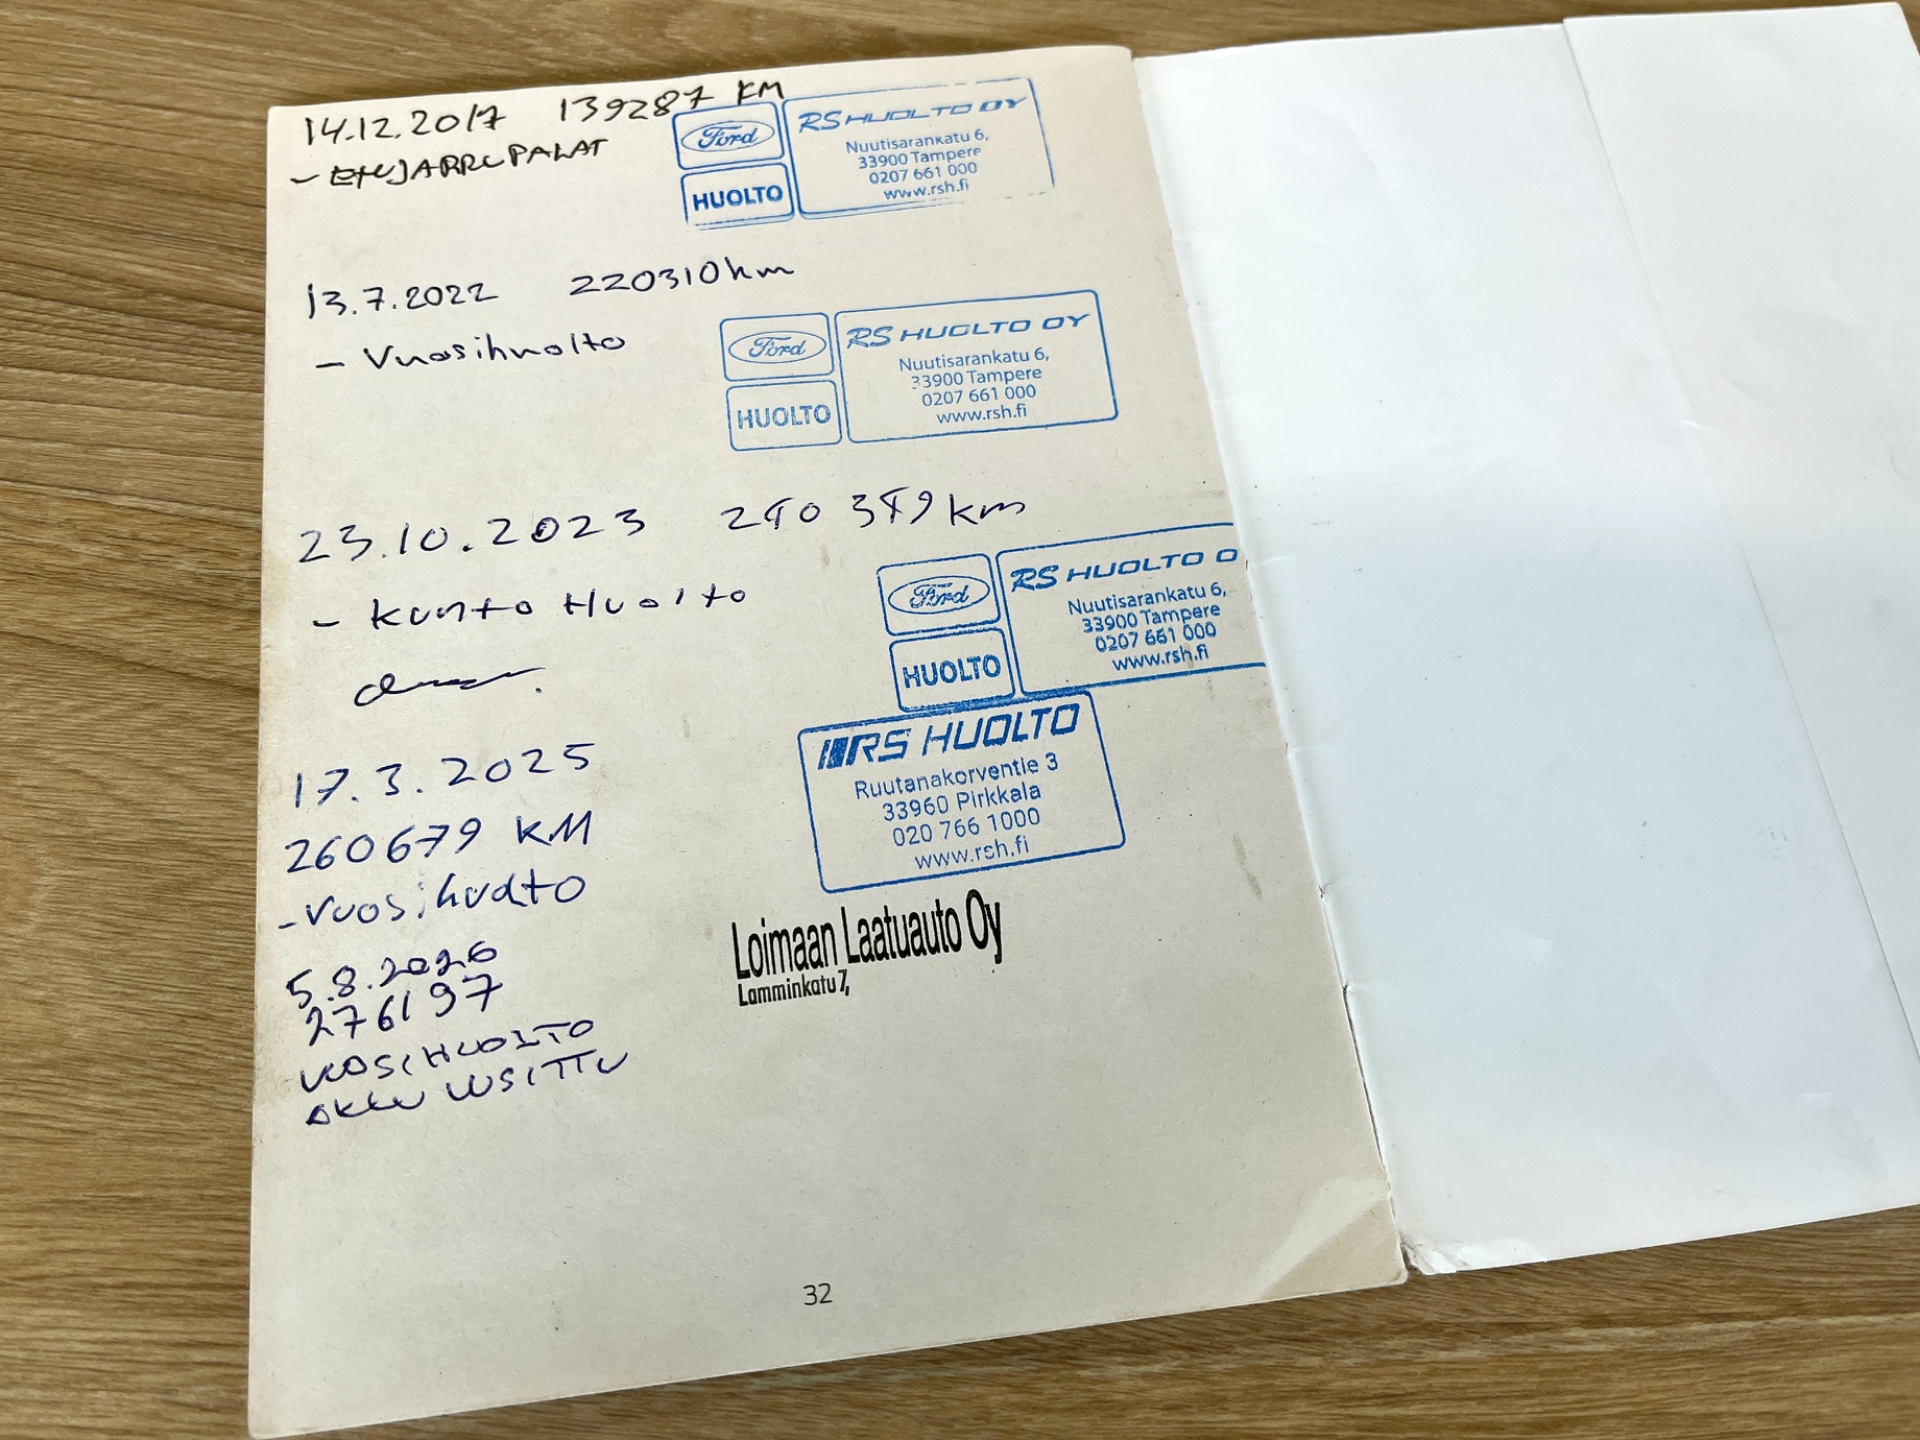 14.12.2017 139287 KM
- ETUJARRUPALAT
Ford
HUOLTO
RS HUOLTO OY
Nuutisarankatu 6,
33900 Tampere
0207 661 000
www.rsh.fi
13.7.2022 220310 km
- Vuosihuolto
Ford
HUOLTO
RS HUOLTO OY
Nuutisarankatu 6,
33900 Tampere
0207 661 000
www.rsh.fi
23.10.2023 240 349 km
- Kunto Huolto
Ford
HUOLTO
RS HUOLTO O
Nuutisarankatu 6,
33900 Tampere
0207 661 000
www.rsh.fi
17.3.2025
260679 KM
- Vuosihuolto
RS HUOLTO
Ruutanakorventie 3
33960 Pirkkala
020 766 1000
www.rsh.fi
5.8.2026
276197
VUOSIHUOLTO
AKKU UUSITTU
Loimaan Laatuauto Oy
Lamminkatu 7,
32